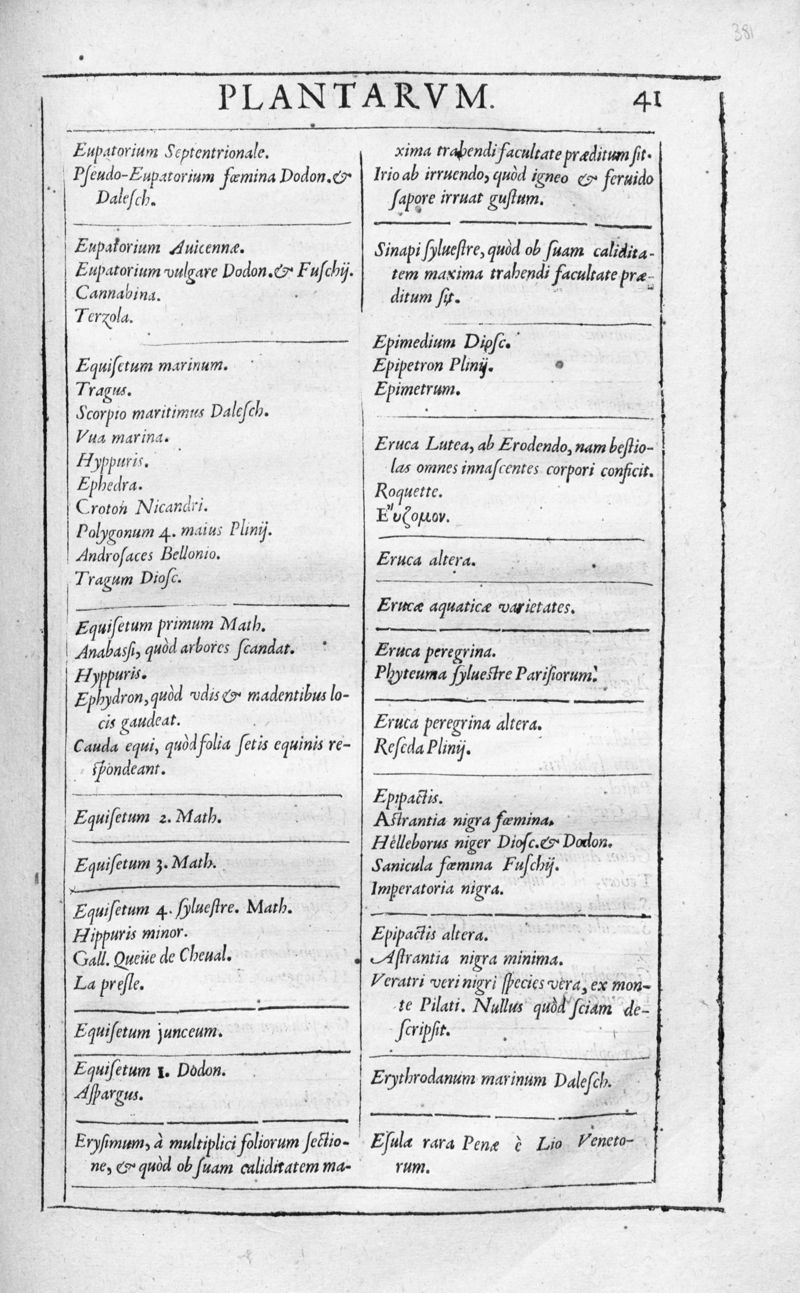 381
PLANTARVM. 41
Eupatorium Septentrionale.
Pſeudo-Eupatorium fœmina Dodon. &
Daleſch.
Eupatorium Auicennæ.
Eupatorium vulgare Dodon. & Fuſchij.
Cannabina.
Terzola.
Equiſetum marinum.
Tragus.
Scorpio maritimus Daleſch.
Vua marina.
Hyppuris.
Ephedra.
Croton Nicandri.
Polygonum 4. maius Plinij.
Androſaces Bellonio.
Tragum Dioſc.
Equiſetum primum Math.
Anabaſſi, quòd arbores ſcandat.
Hyppuris.
Ephydron, quòd vdis & madentibus lo-
cis gaudeat.
Cauda equi, quòd folia ſetis equinis re-
ſpondeant.
Equiſetum 2. Math.
Equiſetum 3. Math.
Equiſetum 4. ſylueſtre. Math.
Hippuris minor.
Gall. Queüe de Cheual.
La preſle.
Equiſetum junceum.
Equiſetum 1. Dodon.
Aſpargus.
Eryſimum, à multiplici foliorum ſectio-
ne, & quòd ob ſuam caliditatem ma-
xima trahendi facultate præditum ſit.
Irio ab irruendo, quòd igneo & feruido
ſapore irruat guſtum.
Sinapi ſylueſtre, quòd ob ſuam calidita-
tem maxima trahendi facultate præ-
ditum ſit.
Epimedium Dioſc.
Epipetron Plinij.
Epimetrum.
Eruca Lutea, ab Erodendo, nam beſtio-
las omnes innaſcentes corpori conficit.
Roquette.
Εὔζομον.
Eruca altera.
Erucæ aquaticæ varietates.
Eruca peregrina.
Phyteuma ſylueſtre Pariſiorum.
Eruca peregrina altera.
Reſeda Plinij.
Epipactis.
Aſtrantia nigra fœmina.
Helleborus niger Dioſc. & Dodon.
Sanicula fœmina Fuſchij.
Imperatoria nigra.
Epipactis altera.
Aſtrantia nigra minima.
Veratri veri nigri ſpecies vera, ex mon-
te Pilati. Nullus quòd ſciam de-
ſcripſit.
Erythrodanum marinum Daleſch.
Eſula rara Penæ è Lio Veneto-
rum.